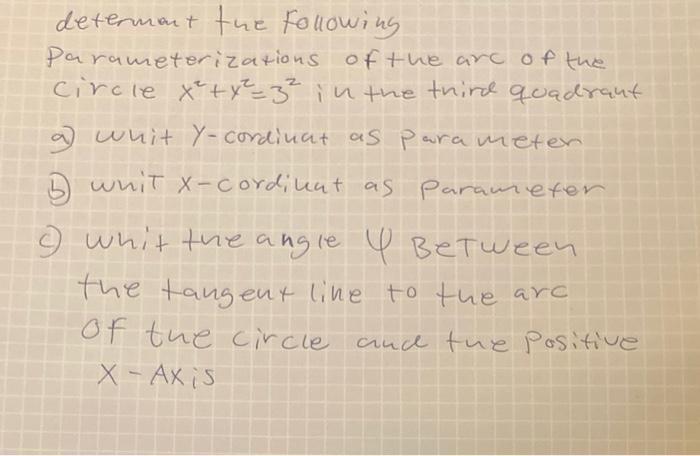 determant the Following
Parameterizations of the arc of the
circle x²+y²=3² in the third quadrant
a) whit Y-cordinat as parameter
b) whit X-cordinat as parameter
c) whit the angle ψ BeTween
the tangent line to the arc
of the circle and the Positive
X-Axis